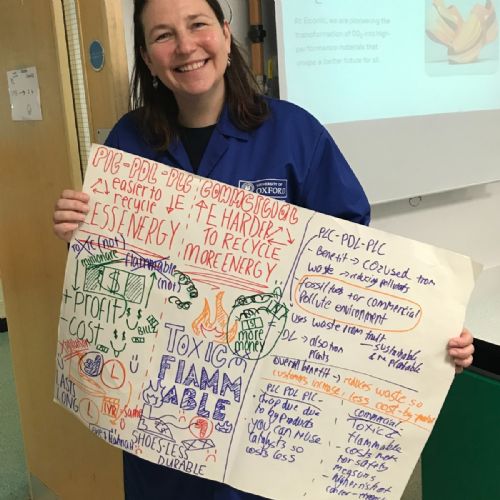 At Econic, we are pioneering the
transformation of CO2 into high-
performance materials that
shape a better future for all.
UNIVERSITY OF
OXFORD
PLC-PDL-PLC
easier to
recycle
LESS ENERGY
TOXIC (not)
flammable
(not)
+ PROFIT
COST
BILL
LASTS
LONG
same
COMMERCIAL
HARDER
TO RECYCLE
MORE ENERGY
more
money
TOXIC
FLAMM
ABLE
SHOES-LESS
DURABLE
PLC-PDL-PLC
- Benefit → CO2 used from
waste → reducing pollutants
fossil fuels for commercial
pollute environment
uses waste from fruit
DL → also from
plants
sustainable
& renewable
overall benefit → reduces waste so
customers increase, less cost - by product
PLC PDL PLC -
- cheap due
to by products
- you can reuse
catalysts so
costs less
commercial
- TOXIC &
flammable
- costs more
for safety
measures
- higher risk of
cancer - more